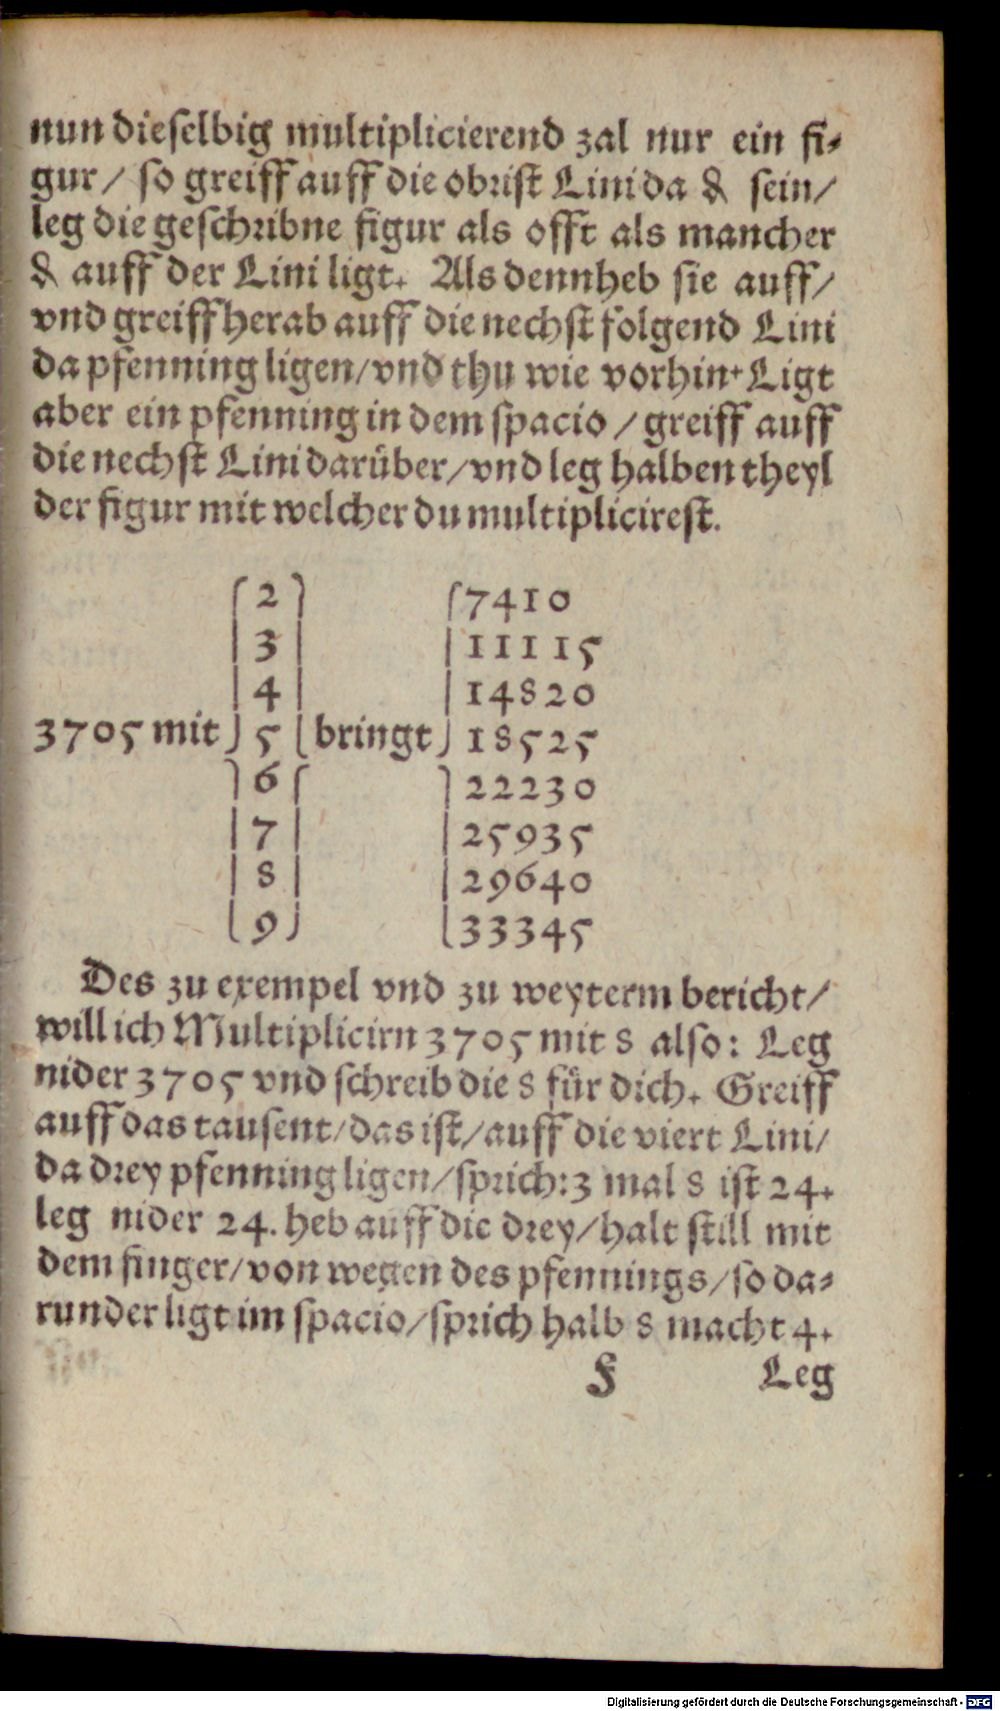 nun dieselbig multiplicierend zal nur ein fi⸗
gur / so greiff auff die obrist Lini da ₰ sein /
leg die geschribne figur als offt als mancher
₰ auff der Lini ligt. Als denn heb sie auff /
vnd greiff herab auff die nechst folgend Lini
da pfenning ligen / vnd thu wie vorhin. Ligt
aber ein pfenning in dem spacio / greiff auff
die nechst Lini darüber / vnd leg halben theyl
der figur mit welcher du multiplicirest.
2 7410
3 11115
4 14820
3705 mit 5 bringt 18525
6 22230
7 25935
8 29640
9 33345
Des zu exempel vnd zu weyterm bericht /
will ich Multiplicirn 3705 mit 8 also: Leg
nider 3705 vnd schreib die 8 für dich. Greiff
auff das tausent / das ist / auff die viert Lini /
da drey pfenning ligen / sprich: 3 mal 8 ist 24.
leg nider 24. heb auff die drey / halt still mit
dem finger / von wegen des pfennings / so da⸗
runder ligt im spacio / sprich halb 8 macht 4.
F Leg
Digitalisierung gefördert durch die Deutsche Forschungsgemeinschaft - DFG